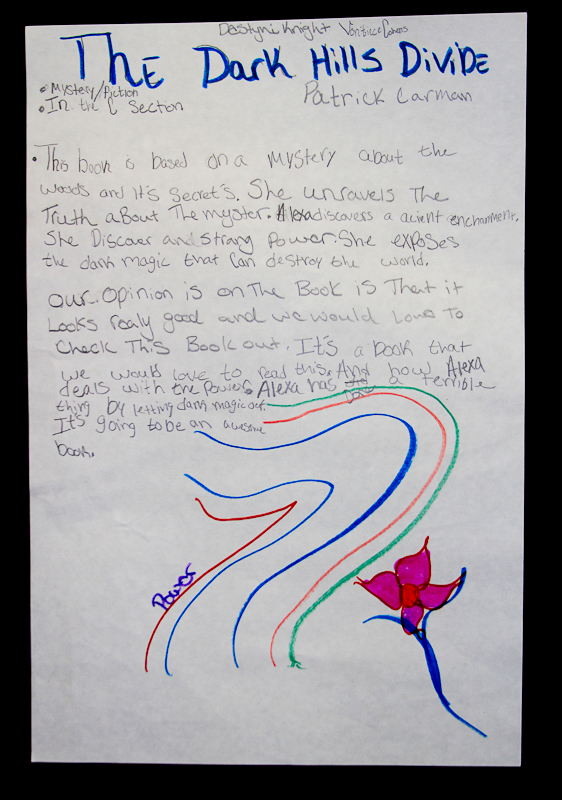 Destyni Knight
The Dark Hills Divide
• Mystery/Fiction
• In the C Section
Patrick Carman
• This book is based on a mystery about the
woods and It's Secret's. She unravels The
Truth about The myster. Alexa discovers a acient enchanment.
She Discover and strang Power. She exposes
the dark magic that can destroy the world.
Our. Opinion is on The Book is That it
Looks realy good and we would Love To
Check This Book out. It's a book that
we would love to read this. And how Alexa
deals with the Power. Alexa has done a terrible
thing by letting dark magic out.
It's going to be an awesome
book.
Power